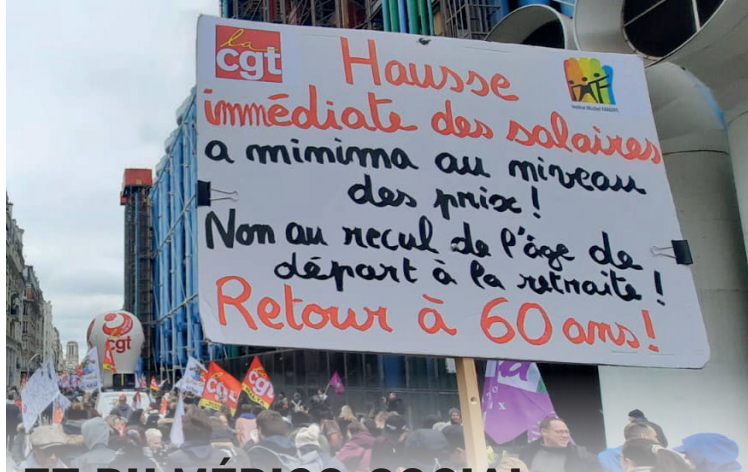 la
cgt
Hausse
immédiate des salaires
a minima au niveau
des prix !
Non au recul de l'âge de
départ à la retraite !
Retour à 60 ans !
cgt
cgt
cgt
ET DU MÉDICO-SOCIAL